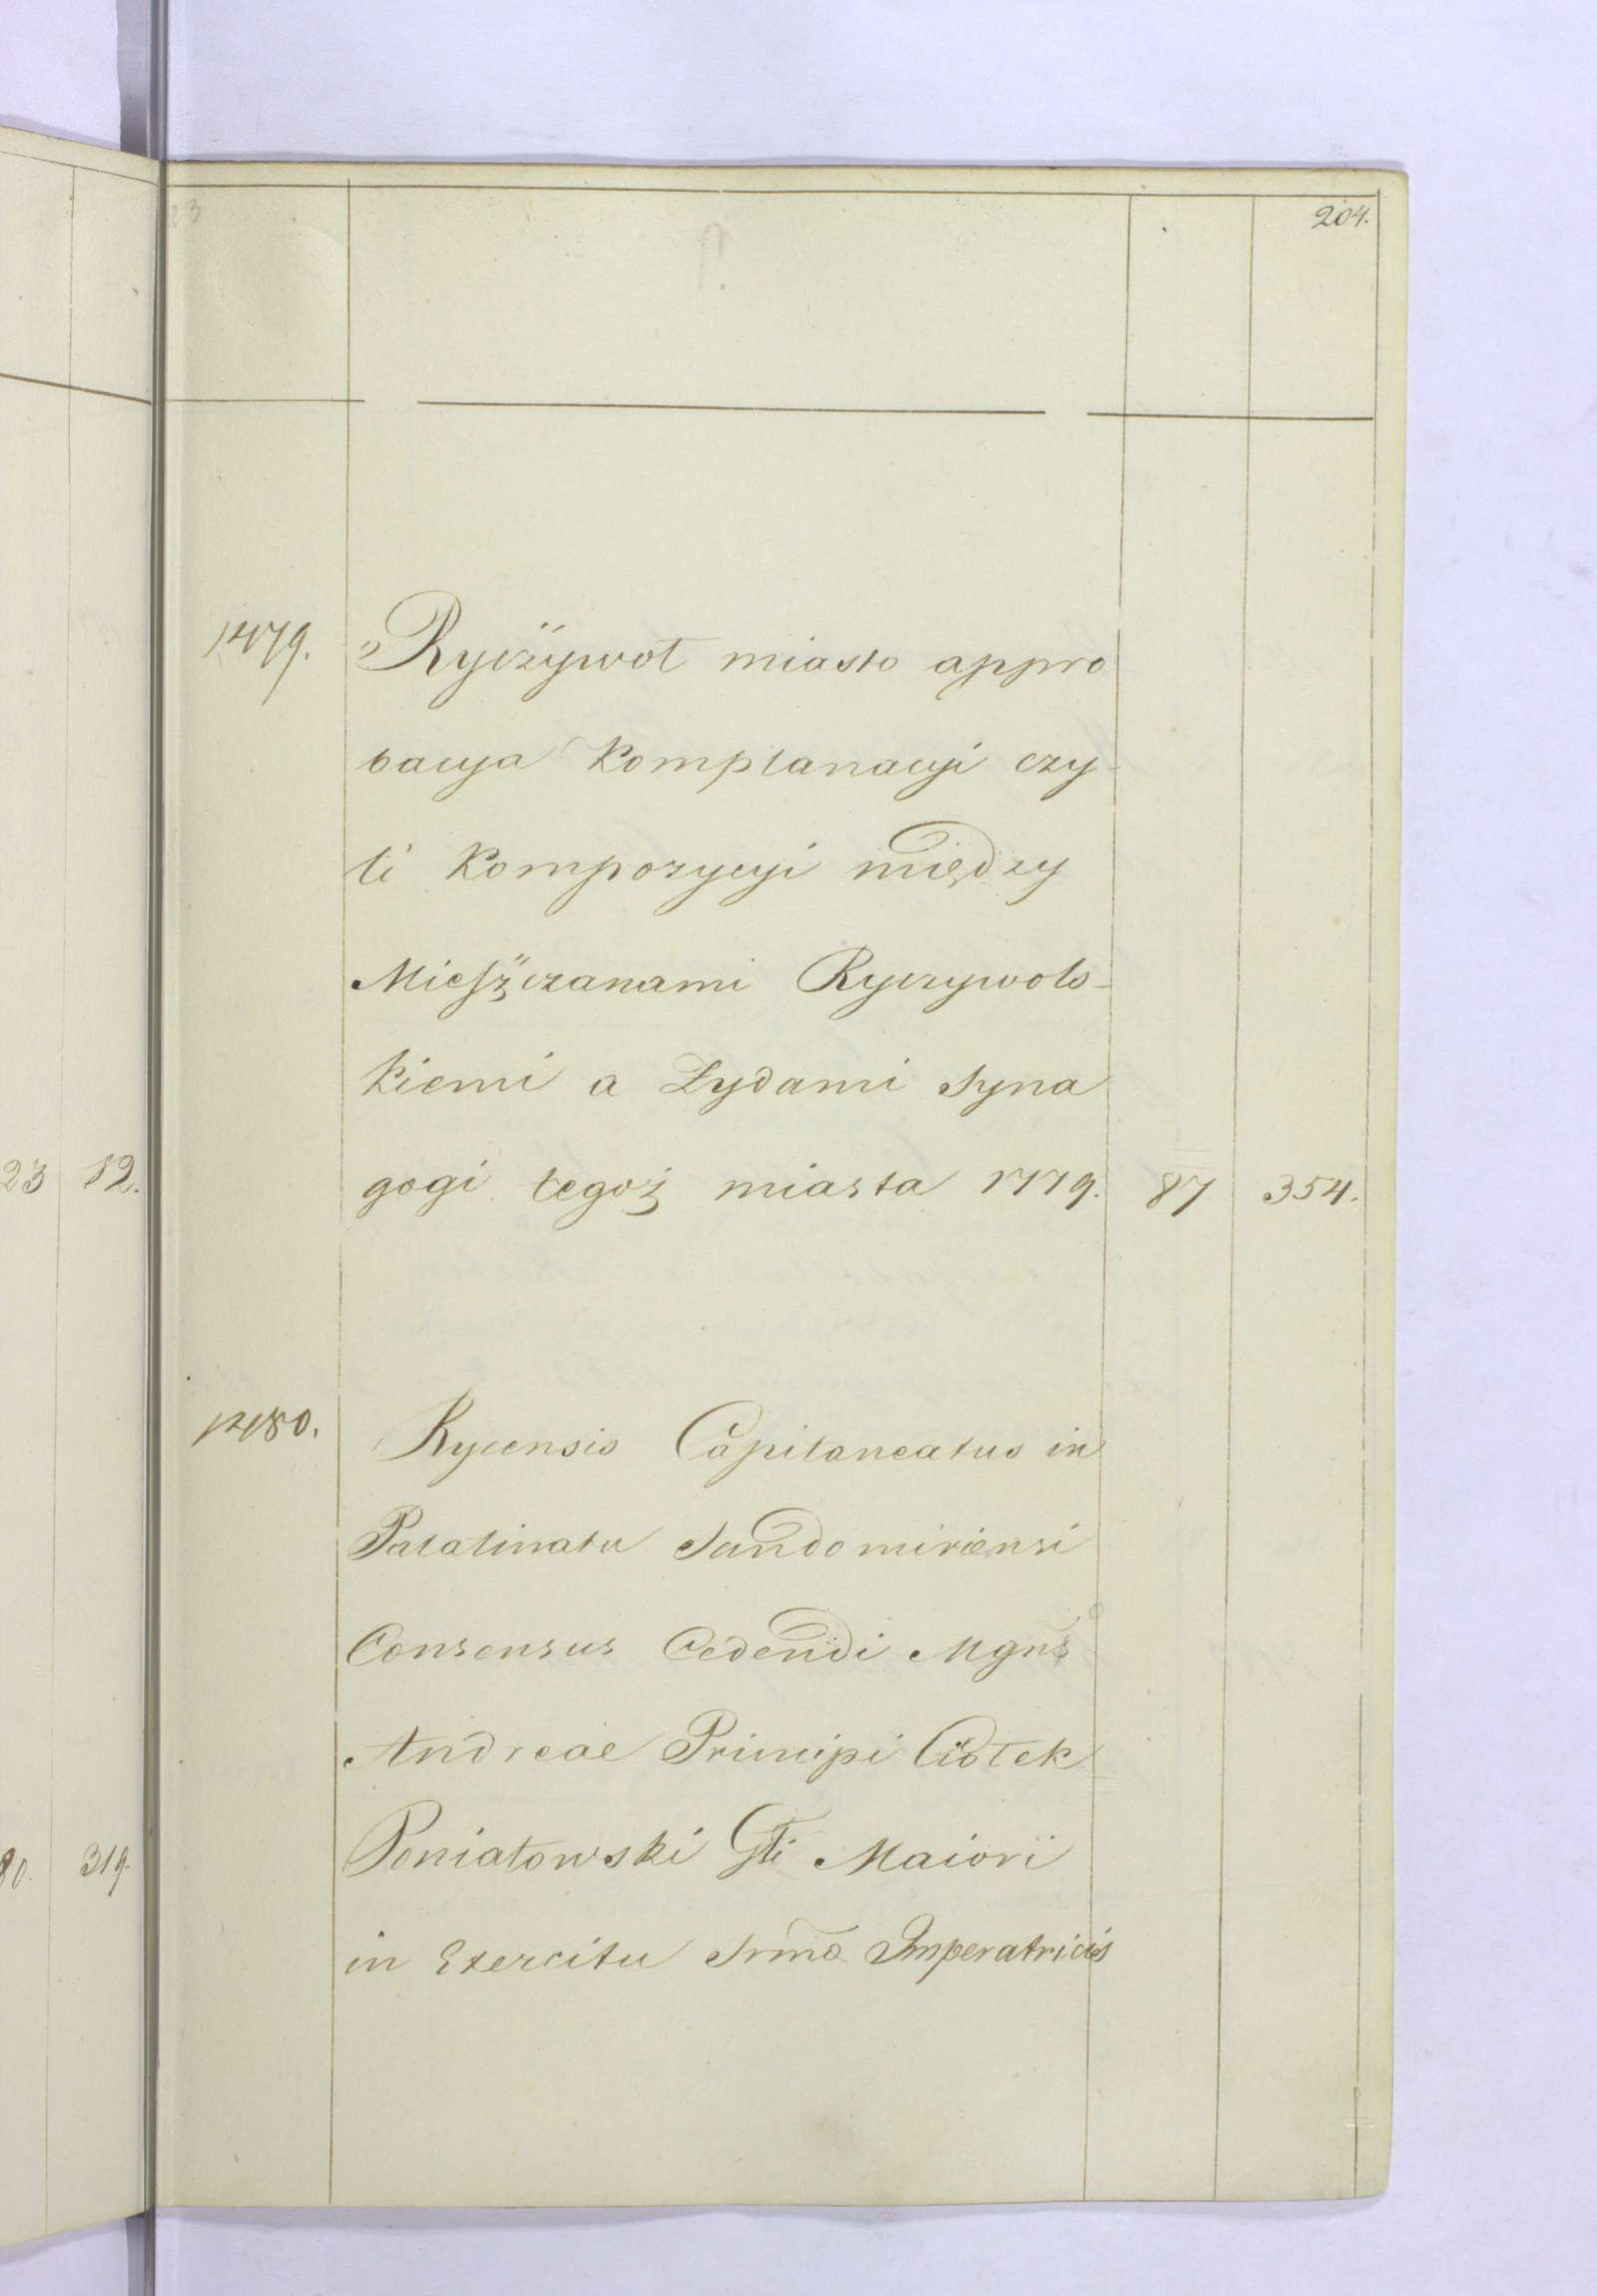 204.
1479. Ryczywoł miasto appro
bacya Komplanacyi czy-
li Kompozycyi między
Mieszczanami Ryczywols-
kiemi a Żydami Syna
gogi tegoż miasta 1779. 87 354.
23 12.
1480. Rycensis Capitaneatus in
Palatinatu Sandomiriensi
Consensus Cedendi Mgno
Andreae Principi Ciołek
Poniatowski Głi Maiori
80. 319.
in Exercitu Srmae Imperatricis